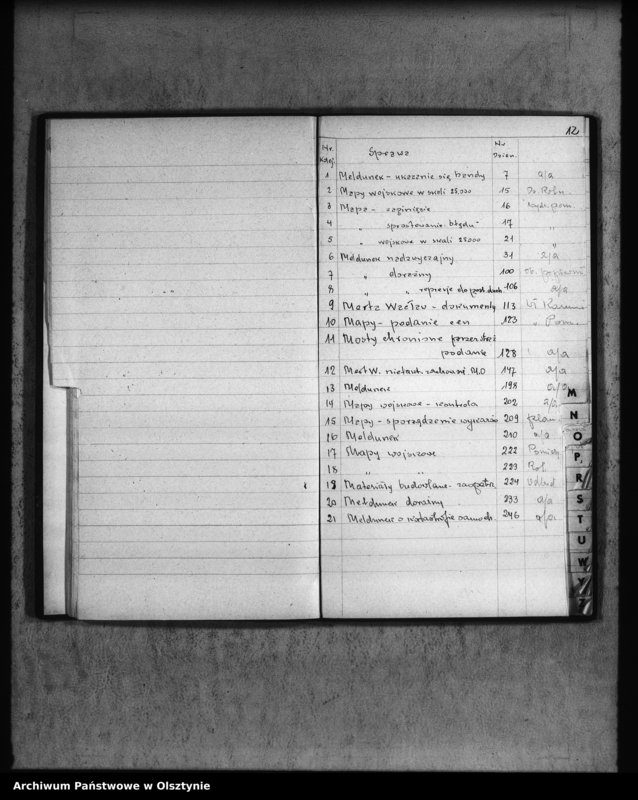 12
Nr. kolej. Sprawa Nr. Dzien.
1 Meldunek - ukazanie się bandy 7 a/a
2 Mapy wojskowe w skali 25.000 15
3 Mapa - 16
4 " sprostowanie błędu 17 "
5 " wojskowe w skali 25000 21 "
6 Meldunek nadzwyczajny 31 a/a
7 " doraźny 100
8 " " represje 106 a/a
9 - dokumenty 113
10 Mapy - podanie cen 123 " Pom.
11 Mosty chronione przez straż
podanie 128 a/a
12 M.O 147 a/a
13 Meldunek 198 a/a
14 Mapy wojskowe - kontrola 202 a/a
15 Mapy - sporządzenie wykazów 209
16 Meldunek 210 a/a
17 Mapy wojskowe 222
18 " " 223 Rol.
19 Materiały budowlane - 224
20 Meldunek doraźny 233 a/a
21 Meldunek o katastrofie samoch. 246 a/a
M
N
O
P
R
S
T
U
W
Archiwum Państwowe w Olsztynie